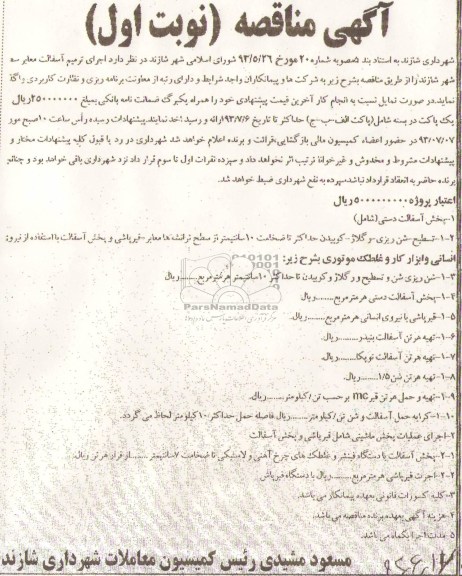 آگهی مناقصه (نوبت اول)
شهرداری شازند به استناد بند ۵ مصوبه شماره ۲۰ مورخ ۹۳/۵/۲۶ شورای اسلامی شهر شازند در نظر دارد اجرای ترمیم آسفالت معابر سطح
شهر شازند را از طریق مناقصه بشرح زیر به شرکت ها و پیمانکاران واجد شرایط و دارای رتبه از معاونت برنامه ریزی و نظارت کاربردی واگذار
نماید.در صورت تمایل نسبت به انجام کار آخرین قیمت پیشنهادی خود را همراه یکبرگ ضمانت نامه بانکی بمبلغ ۲۵۰۰۰۰۰۰۰ریال
یک پاکت در بسته شامل(پاکت الف-ب-ج) حداکثر تا تاریخ ۹۳/۷/۶ ارائه و رسید اخذ نمایند.پیشنهادات رسیده رأس ساعت ۱۰ صبح مورخ
۹۳/۰۷/۰۷ در حضور اعضاء کمیسیون مالی بازگشایی،قرائت و برنده اعلام خواهد شد شهرداری در رد یا قبول کلیه پیشنهادات مختار و
پیشنهادات مشروط و مخدوش و غیر خوانا ترتیب اثر نخواهد داد و سپرده نفرات اول تا سوم قرار داد نزد شهرداری باقی خواهد بود و چنانچه
برنده حاضر به انعقاد قرارداد نباشد،سپرده به نفع شهرداری ضبط خواهد شد.
اعتبار پروژه ۵۰۰۰۰۰۰۰۰۰ریال
۱-پخش آسفالت دستی(شامل)
۱-۲-تسطیح-شن ریزی-و گلاژ-کوبیدن حداکثر تا ضخامت ۱۰سانتیمتر در سطح ترانشه ها معابر-قیرپاشی و پخش آسفالت با استفاده از نیروی
انسانی و ابزار کار و غلطک موتوری بشرح زیر:
۱-۳-شن ریزی شن و تسطیح و رگلاژ و کوبیدن تا حداکثر ۱۰سانتیمتر هر مترمربع........ریال
۱-۴-پخش آسفالت دستی هر مترمربع.......ریال
۱-۵-قیرپاشی با نیروی انسانی هر مترمربع........ریال.
۱-۶-تهیه هر تن آسفالت بیندر........ریال.
۱-۷-تهیه هر تن آسفالت توپکا.......ریال.
۱-۸-تهیه هر تن شن ۱/۵........ریال.
۱-۹-تهیه و حمل هر تن قیر mc برحسب تن/کیلومتر........ریال.
۱-۱۰-کرایه حمل آسفالت و شن تن/کیلومتر........ریال فاصله حمل حداکثر ۱۰ کیلومتر لحاظ می گردد.
۲-اجرای عملیات پخش ماشینی شامل قیرپاشی و پخش آسفالت
۲-۱-پخش آسفالت با دستگاه فینیشر و غلطک های چرخ آهنی و لاستیکی تا ضخامت ۷سانتیمتر........از قرار هر تن ریال.
۲-۲-اجرت قیرپاشی هر مترمربع........ریال با دستگاه قیرپاش
۳-کلیه کسورات قانونی بعهده پیمانکار می باشد.
۴-هزینه آگهی بعهده برنده مناقصه می باشد.
۵-مدت اجرا یکماه می باشد.
مسعود مشیدی رئیس کمیسیون معاملات شهرداری شازند
ParsNamadData